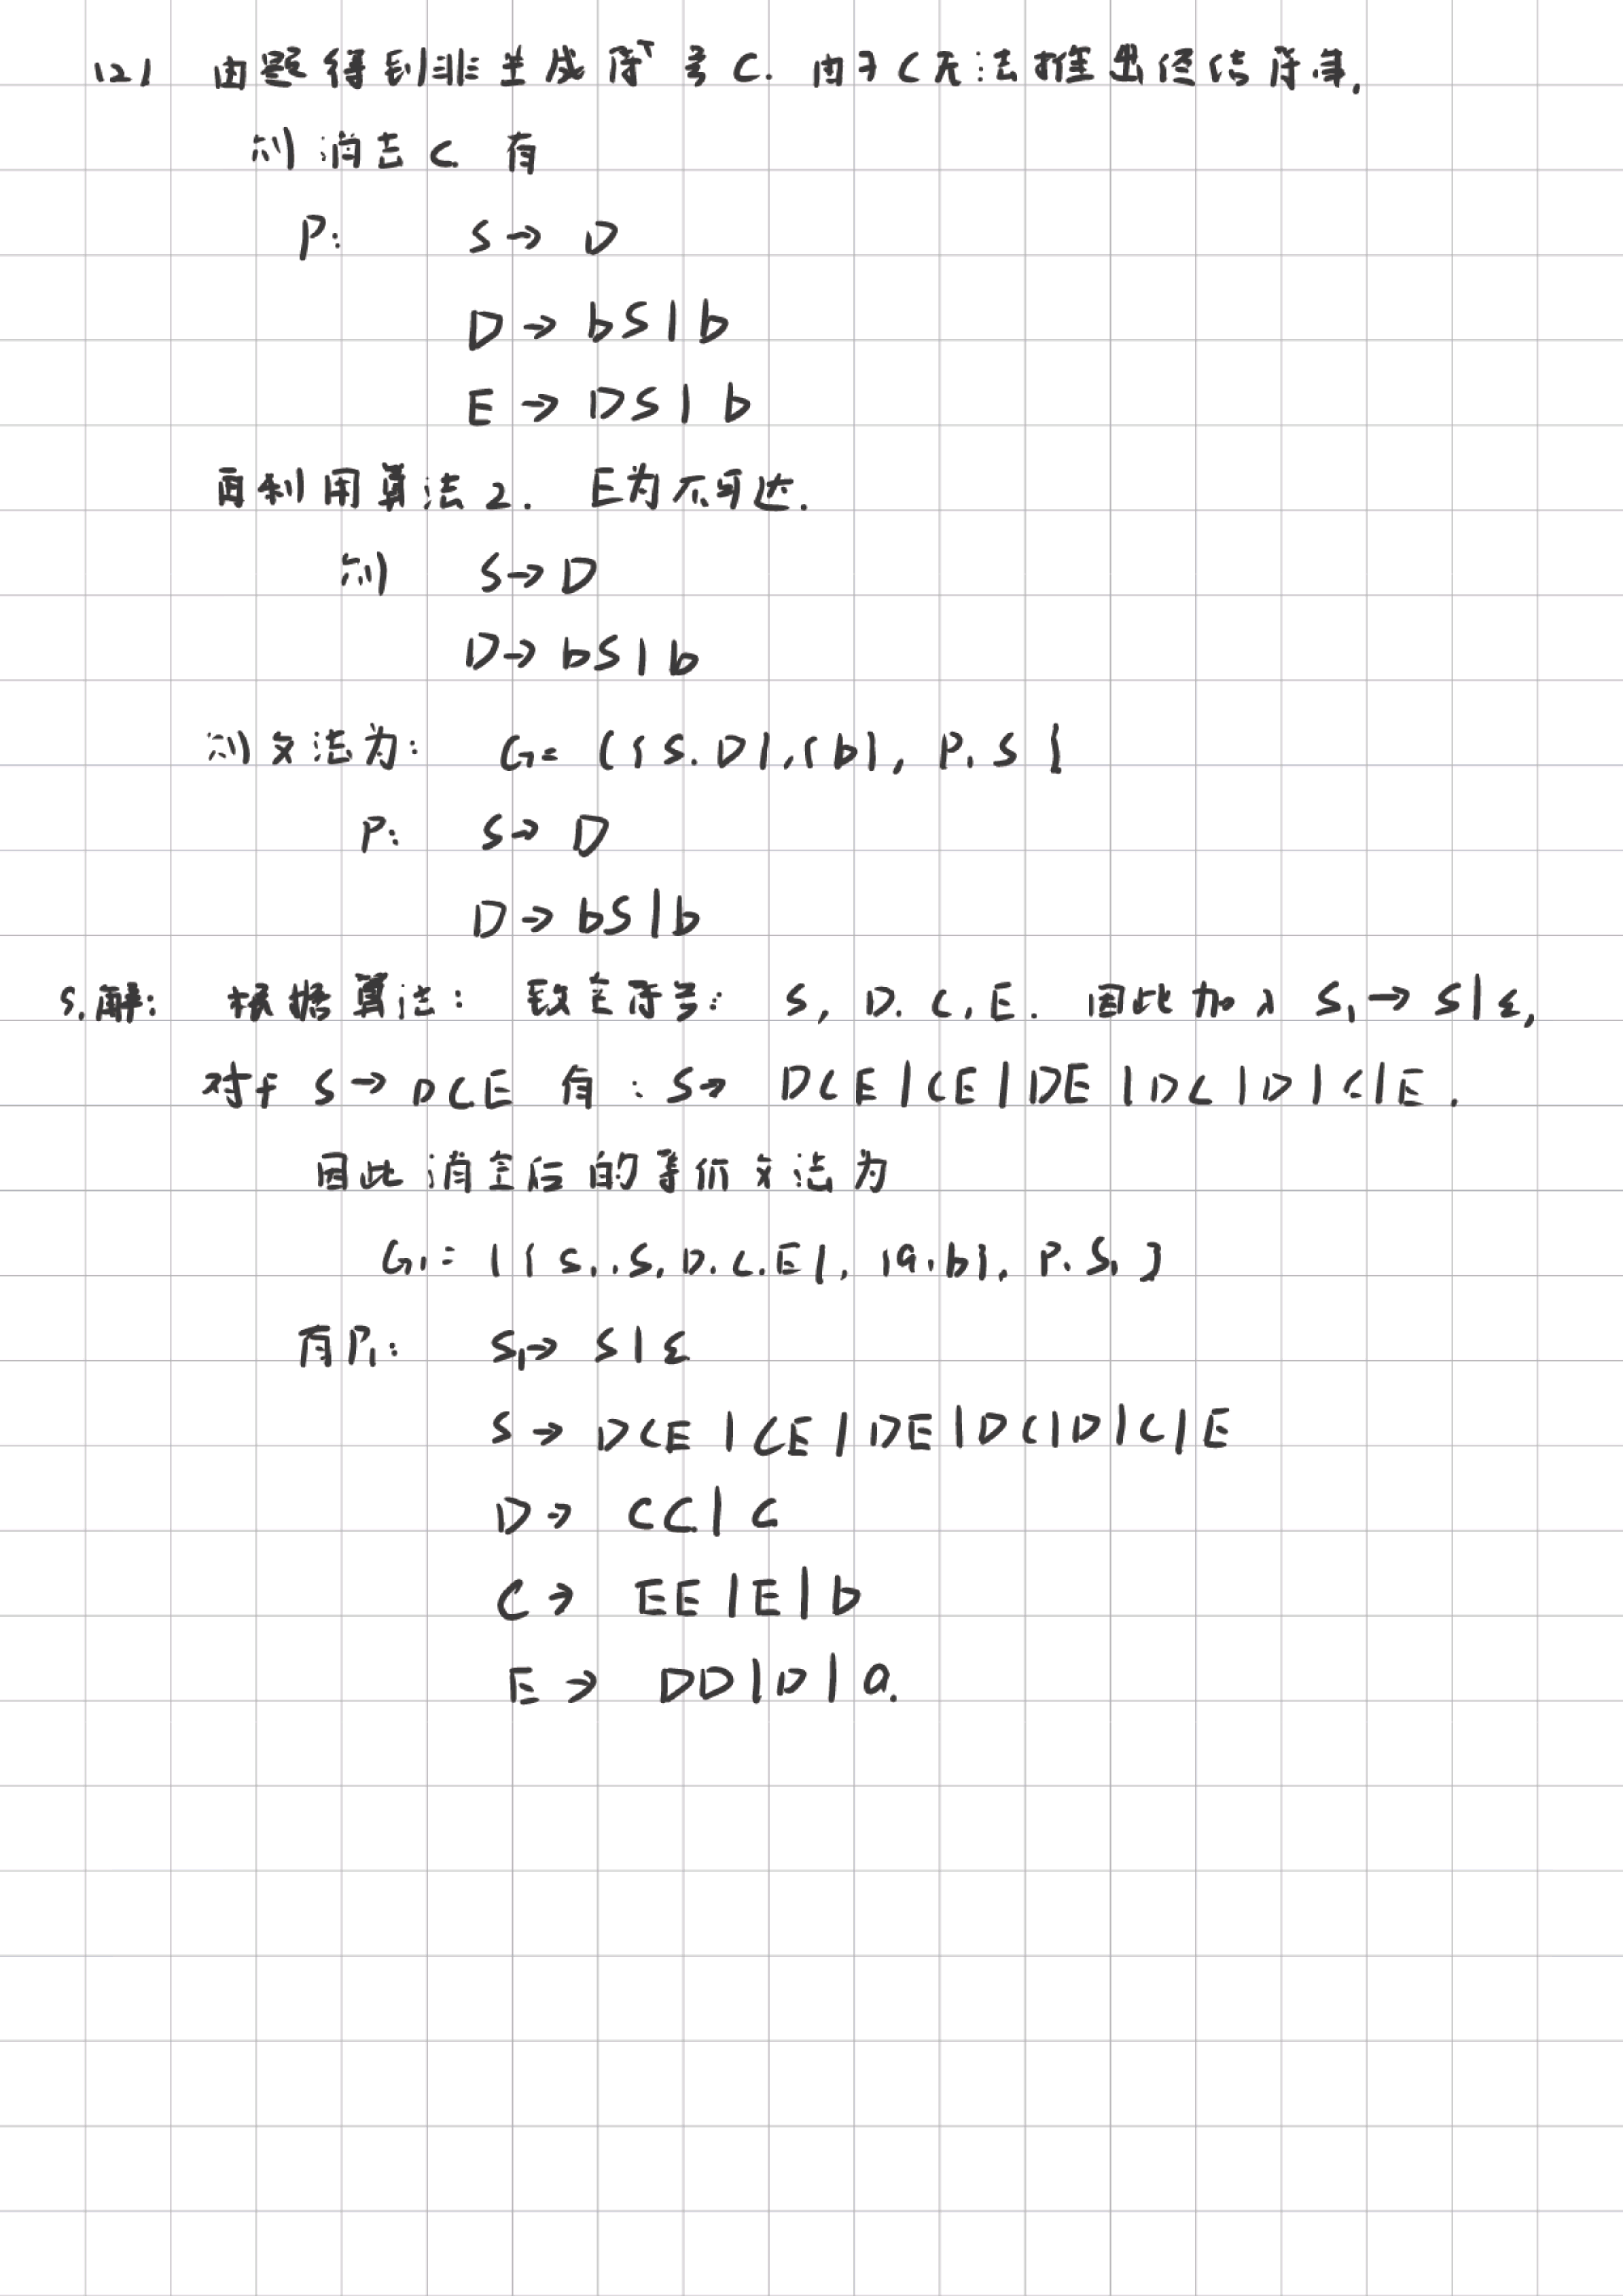 (2) 由题得到非生成符号C. 由于C无法推出终结符串,
则消去C. 有
P: S→ D
D → bS | b
E → DS | b
再利用算法2. E为不可达.
则 S→D
D→ bS | b
则文法为: G= ({S.D},{b}, P, S}
P: S→ D
D → bS | b
5.解: 根据算法: 致空符号: S, D. C, E. 因此加入 S₁→ S|ε,
对于 S→DCE 有: S→ DCE | CE | DE | DC | D | C | E .
因此消空后的等价文法为
G₁= {{S₁,S, D. C. E}, {a,b}, P. S₁}
有P₁: S₁→ S | ε
S → DCE | CE | DE | DC | D | C | E
D → CC | C
C → EE | E | b
E → DD | D | a.